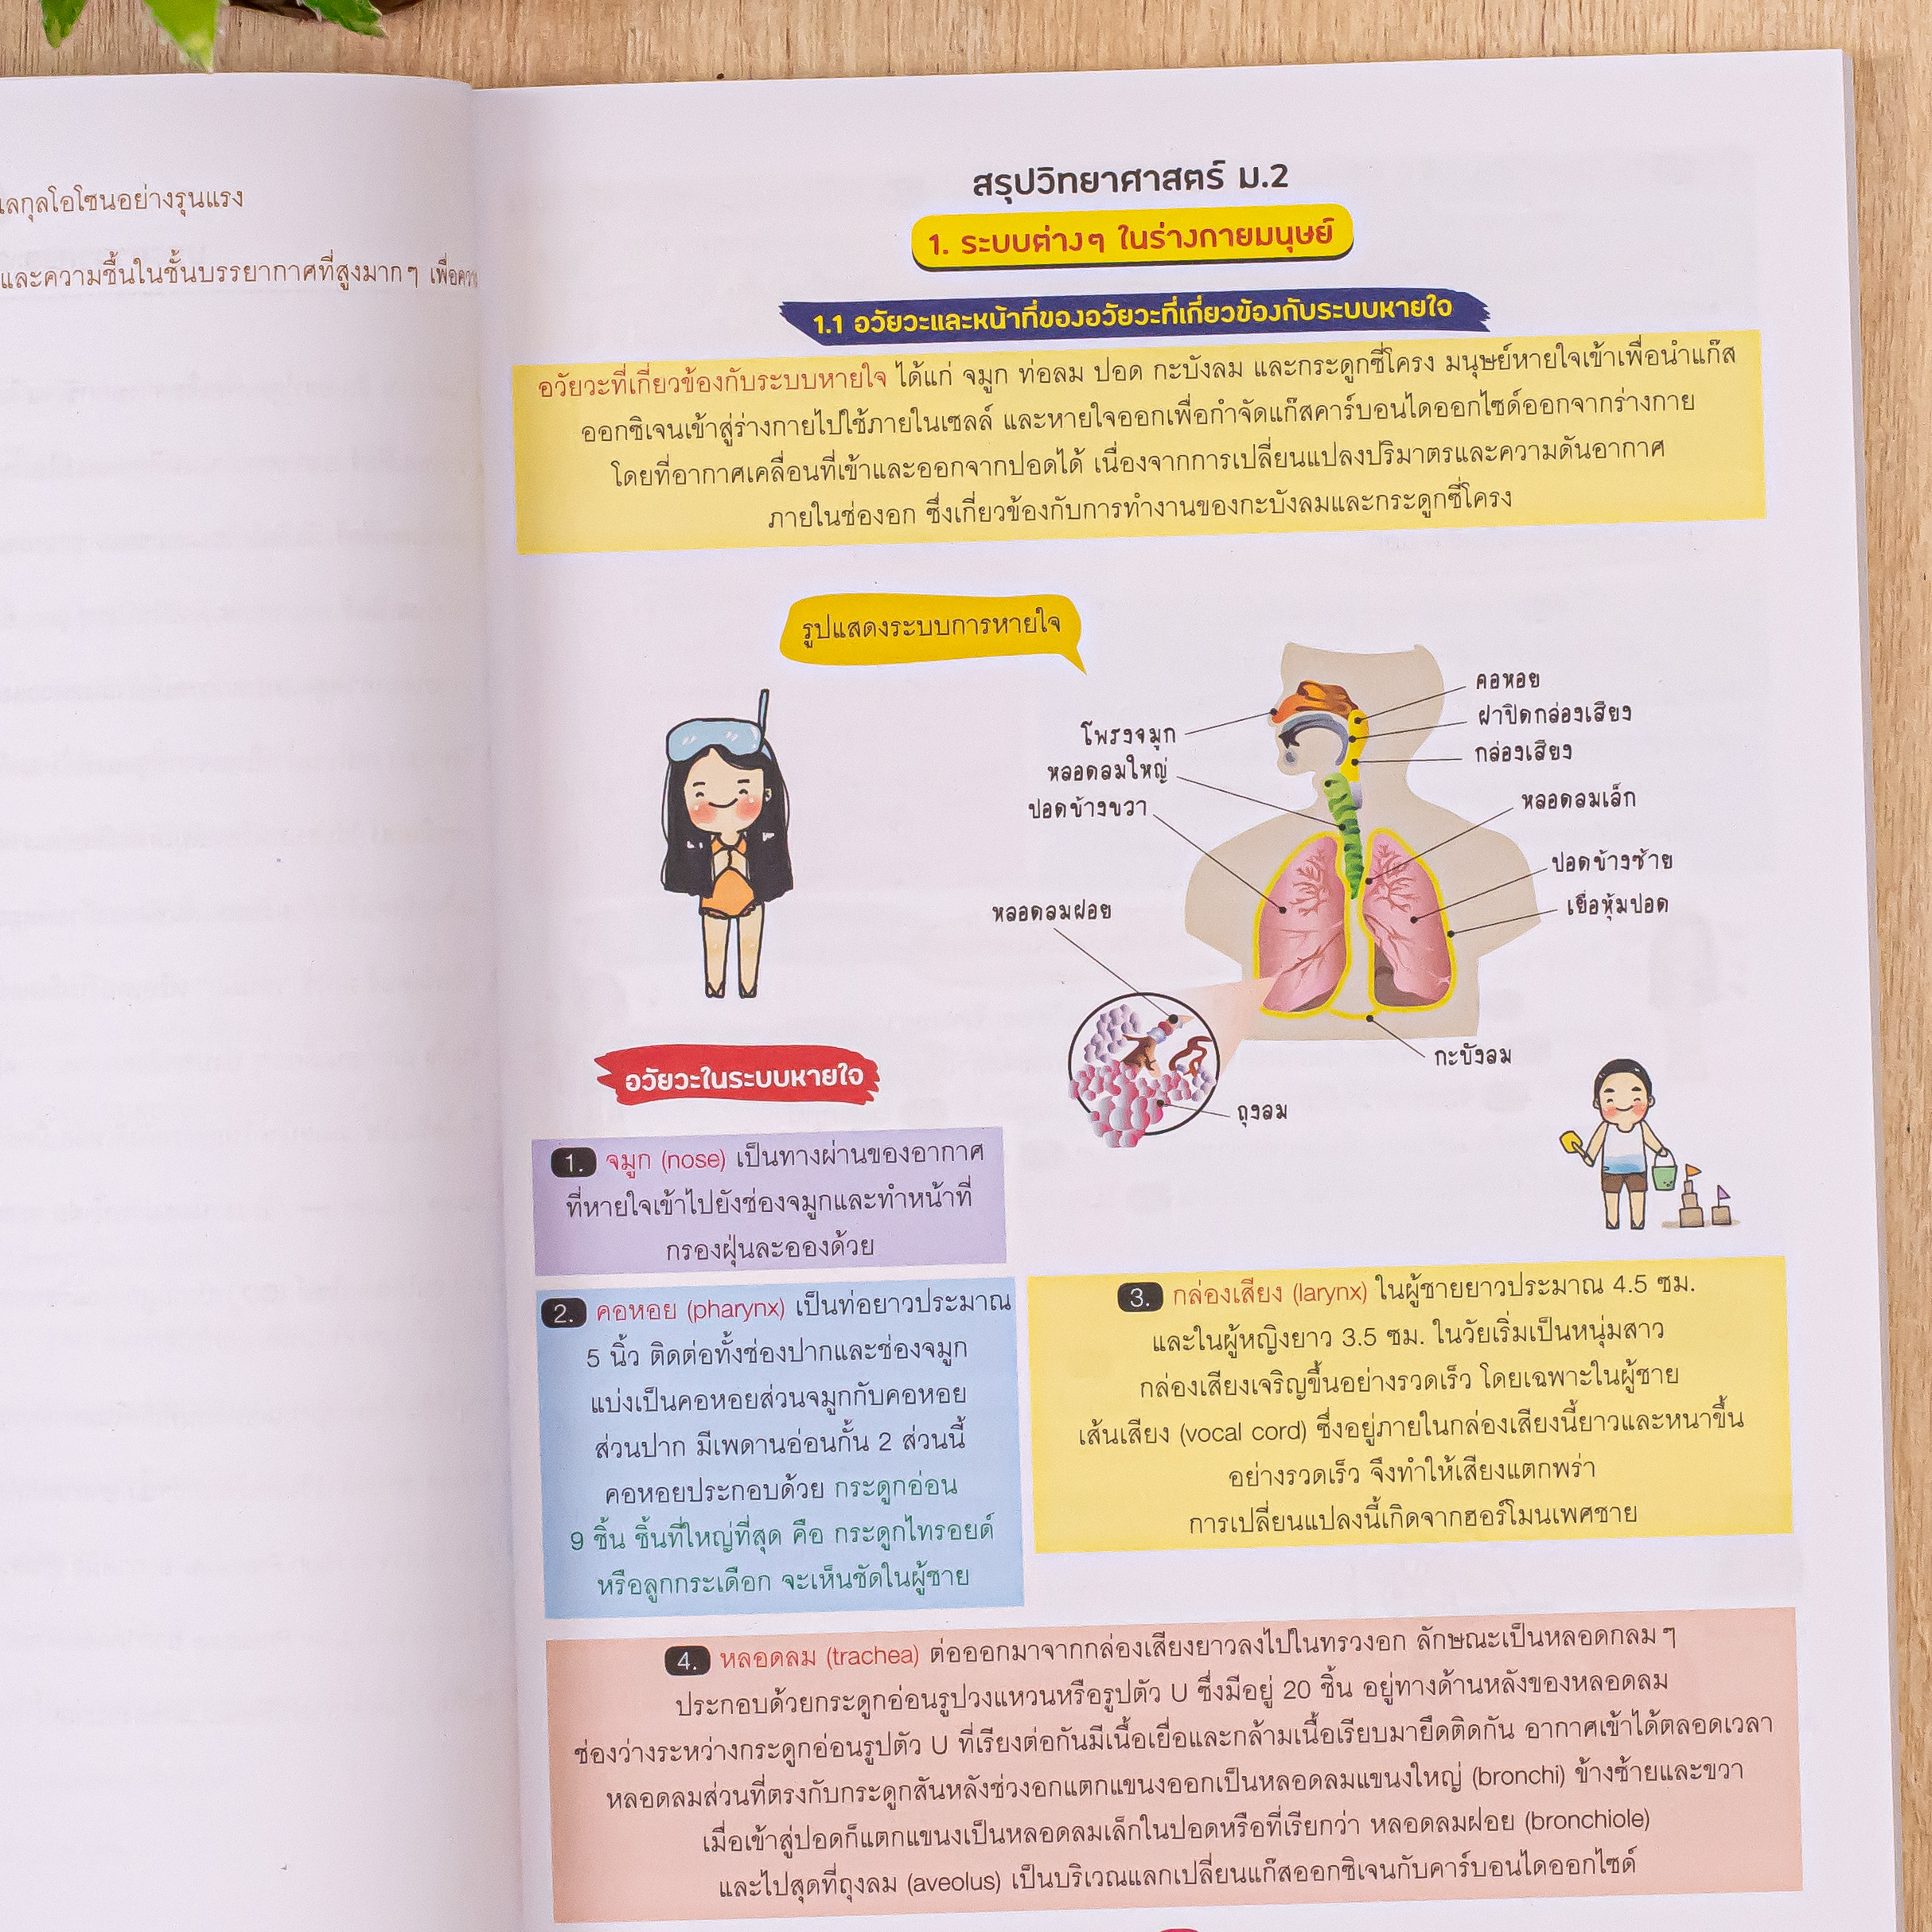 เลกุลโอโซนอย่างรุนแรง
และความชื้นในชั้นบรรยากาศที่สูงมากๆ
สรุปวิทยาศาสตร์ ม.2
1. ระบบต่างๆ ในร่างกายมนุษย์
1.1 อวัยวะและหน้าที่ของอวัยวะที่เกี่ยวข้องกับระบบหายใจ
อวัยวะที่เกี่ยวข้องกับระบบหายใจ ได้แก่ จมูก ท่อลม ปอด กะบังลม และกระดูกซี่โครง มนุษย์หายใจเข้าเพื่อนำแก๊ส
ออกซิเจนเข้าสู่ร่างกายไปใช้ภายในเซลล์ และหายใจออกเพื่อกำจัดแก๊สคาร์บอนไดออกไซด์ออกจากร่างกาย
โดยที่อากาศเคลื่อนที่เข้าและออกจากปอดได้ เนื่องจากการเปลี่ยนแปลงปริมาตรและความดันอากาศ
ภายในช่องอก ซึ่งเกี่ยวข้องกับการทำงานของกะบังลมและกระดูกซี่โครง
รูปแสดงระบบการหายใจ
คอหอย
ฝาปิดกล่องเสียง
กล่องเสียง
โพรงจมูก
หลอดลมใหญ่
ปอดข้างขวา
หลอดลมเล็ก
ปอดข้างซ้าย
เยื่อหุ้มปอด
หลอดลมฝอย
กะบังลม
ถุงลม
อวัยวะในระบบหายใจ
1. จมูก (nose) เป็นทางผ่านของอากาศ
ที่หายใจเข้าไปยังช่องจมูกและทำหน้าที่
กรองฝุ่นละอองด้วย
2. คอหอย (pharynx) เป็นท่อยาวประมาณ
5 นิ้ว ติดต่อทั้งช่องปากและช่องจมูก
แบ่งเป็นคอหอยส่วนจมูกกับคอหอย
ส่วนปาก มีเพดานอ่อนกั้น 2 ส่วนนี้
คอหอยประกอบด้วย กระดูกอ่อน
9 ชิ้น ชิ้นที่ใหญ่ที่สุด คือ กระดูกไทรอยด์
หรือลูกกระเดือก จะเห็นชัดในผู้ชาย
3. กล่องเสียง (larynx) ในผู้ชายยาวประมาณ 4.5 ซม.
และในผู้หญิงยาว 3.5 ซม. ในวัยเริ่มเป็นหนุ่มสาว
กล่องเสียงเจริญขึ้นอย่างรวดเร็ว โดยเฉพาะในผู้ชาย
เส้นเสียง (vocal cord) ซึ่งอยู่ภายในกล่องเสียงนี้ยาวและหนาขึ้น
อย่างรวดเร็ว จึงทำให้เสียงแตกพร่า
การเปลี่ยนแปลงนี้เกิดจากฮอร์โมนเพศชาย
4. หลอดลม (trachea) ต่อออกมาจากกล่องเสียงยาวลงไปในทรวงอก ลักษณะเป็นหลอดกลมๆ
ประกอบด้วยกระดูกอ่อนรูปวงแหวนหรือรูปตัว U ซึ่งมีอยู่ 20 ชิ้น อยู่ทางด้านหลังของหลอดลม
ช่องว่างระหว่างกระดูกอ่อนรูปตัว U ที่เรียงต่อกันมีเนื้อเยื่อและกล้ามเนื้อเรียบมายึดติดกัน อากาศเข้าได้ตลอดเวลา
หลอดลมส่วนที่ตรงกับกระดูกสันหลังช่วงอกแตกแขนงออกเป็นหลอดลมแขนงใหญ่ (bronchi) ข้างซ้ายและขวา
เมื่อเข้าสู่ปอดก็แตกแขนงเป็นหลอดลมเล็กในปอดหรือที่เรียกว่า หลอดลมฝอย (bronchiole)
และไปสุดที่ถุงลม (aveolus) เป็นบริเวณแลกเปลี่ยนแก๊สออกซิเจนกับคาร์บอนไดออกไซด์